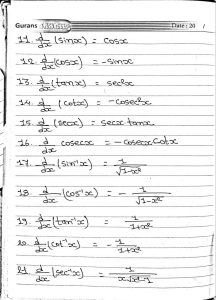 Gurans Date : 20 /
11. d/dx (sinx) = cosx
12. d/dx (cosx) = -sinx
13. d/dx (tanx) = sec²x
14. d/dx (cotx) = -cosec²x
15. d/dx (secx) = secx tanx
16. d/dx cosecx = -cosecx Cotx
17. d/dx (sin⁻¹x) = 1/√1-x²
18. d/dx (cos⁻¹x) = - 1/√1-x²
19. d/dx (tan⁻¹x) = 1/1+x²
20. d/dx (cot⁻¹x) = - 1/1+x²
21. d/dx (sec⁻¹x) = 1/x√x²-1